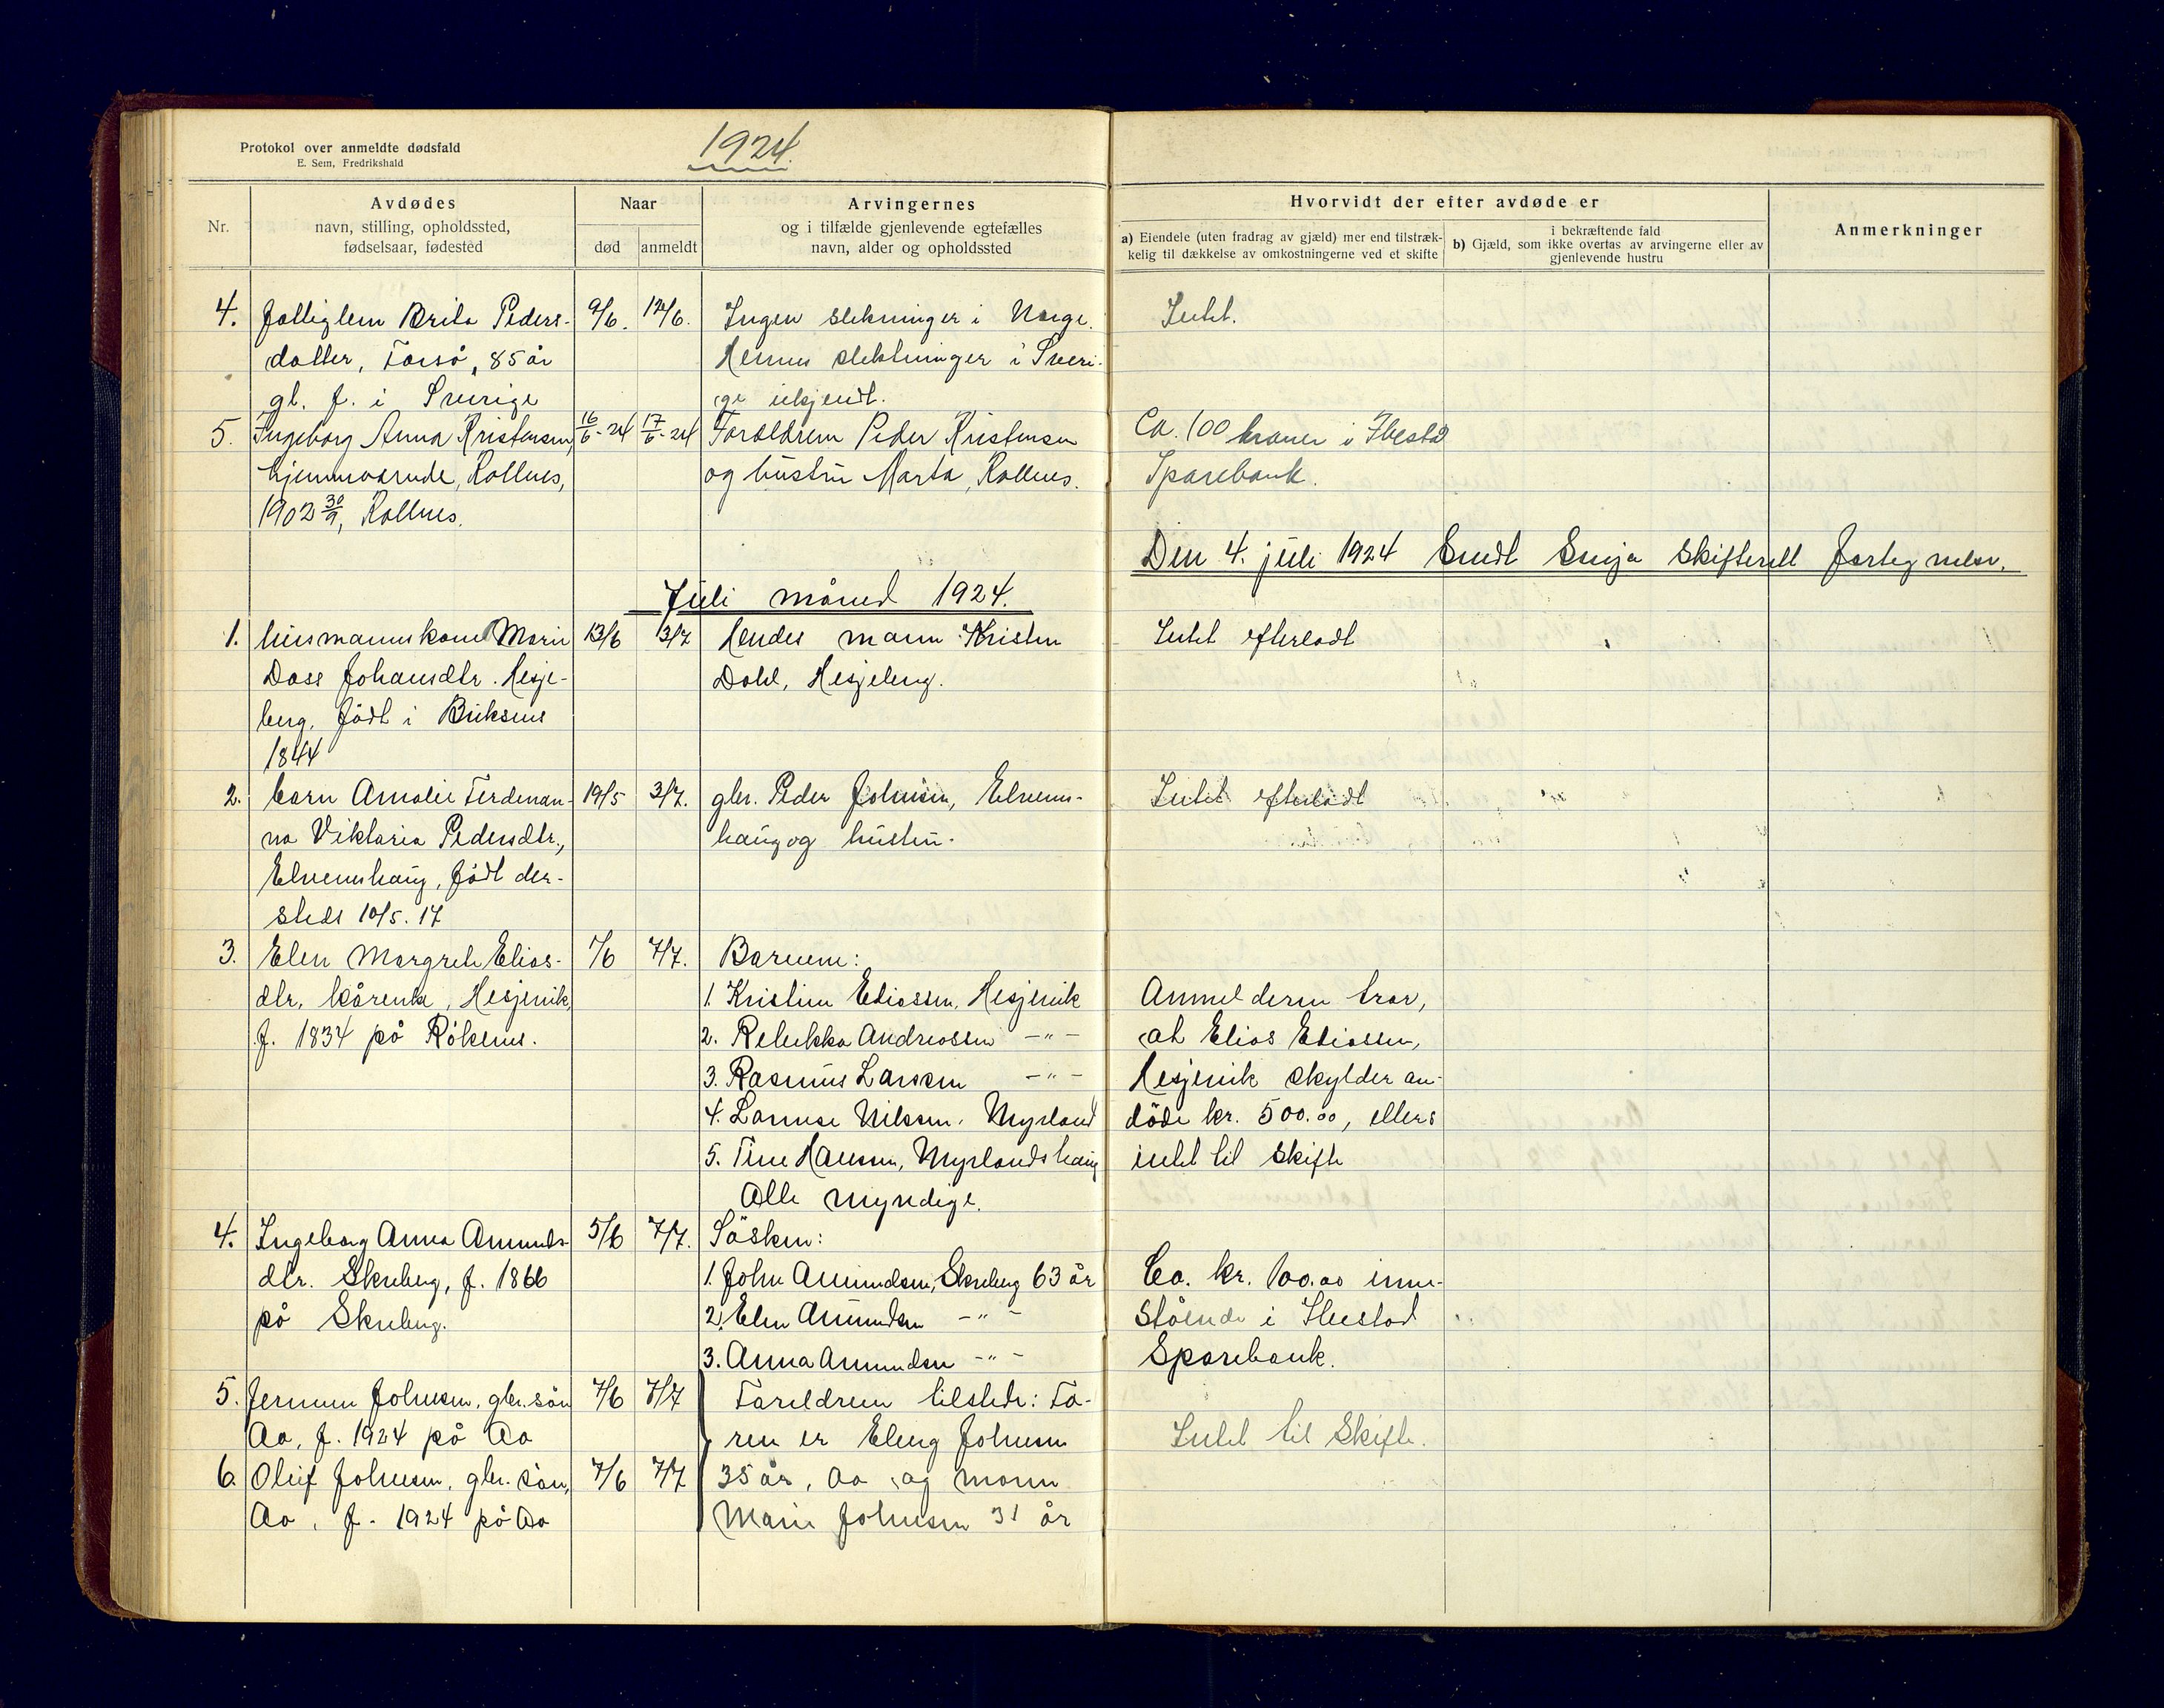 Protokol over anmeldte dødsfald
E. Sem, Fredrikshald
1924.
Nr.
Avdødes
navn, stilling, opholdssted,
fødselsaar, fødested
Naar
død
anmeldt
Arvingernes
og i tilfælde gjenlevende egtefælles
navn, alder og opholdssted
Hvorvidt der efter avdøde er
a) Eiendele (uten fradrag av gjæld) mer end tilstræk-
kelig til dækkelse av omkostningerne ved et skifte
i bekræftende fald
b) Gjæld, som ikke overtas av arvingerne eller av
gjenlevende hustru
Anmerkninger
4. Fattiglem Brita Peders- 9/6. 12/6. Ingen slektninger i Norge. Intet.
datter, Forså, 85 år Hennes slektninger i Sveri-
gl. f. i Sverige ge ukjendt.
5. Ingeborg Anna Kristensen, 16/6-24 17/6-24 Forældrene Peder Kristensen Ca. 100 kroner i Ibestad
hjemmeværende, Rollnes, og hustru Marta, Rollnes. Sparebank.
1902 30/9, Rollnes.
Den 4. juli 1924 Sendt Senja Skifterett fortegnelse.
Juli måned 1924.
1. husmannskone Marie 13/6 3/7 Hendes mann: Kristen Intet efterladt
Dass Johansdtr. Hesje- Dahl, Hesjeberg.
berg, født i Buksnes
1844
2. barn Amalie Ferdinan- 19/5 3/7. gbr. Peder Johnsen, Elvenes- Intet efterladt
na Viktoria Pedersdtr., haug og hustru.
Elveneshaug, født der-
steds 10/5. 17
3. Elen Margrete Elias- 7/6 7/7. Barnene:
dtr. kårenke, Hesjevik, 1. Kristine Ediassen, Hesjevik Anmelderen tror,
f. 1834 på Røkenes. 2. Rebekka Andreassen -"- at Elias Ediassen,
3. Rasmus Larsen -"- Hesjevik skylder av-
4. Larnese Nilsen, Myrland døde kr. 500.00, ellers
5. Tine Hansen, Myrlandshaug intet til skifte
Alle myndige.
4. Ingeborg Anna Amunds- 5/6 7/7. Søsken:
dtr. Skreberg, f. 1866 1. John Amundsen, Skreberg 63 år Ca. kr. 100.00 inne-
på Skreberg. 2. Elen Amundsen -"- stående i Ibestad
3. Anna Amundsen -"- Sparebank.
5. Jermun Johnsen, gbr. søn 7/6 7/7 Foreldrene tilstede: Fa-
Aa, f. 1924 på Aa ren er Eling Johnsen Intet til Skifte.
6. Oluf Johnsen, gbr. søn, 7/6 7/7 35 år, Aa og moren
Aa, f. 1924 på Aa Marie Johnsen 31 år